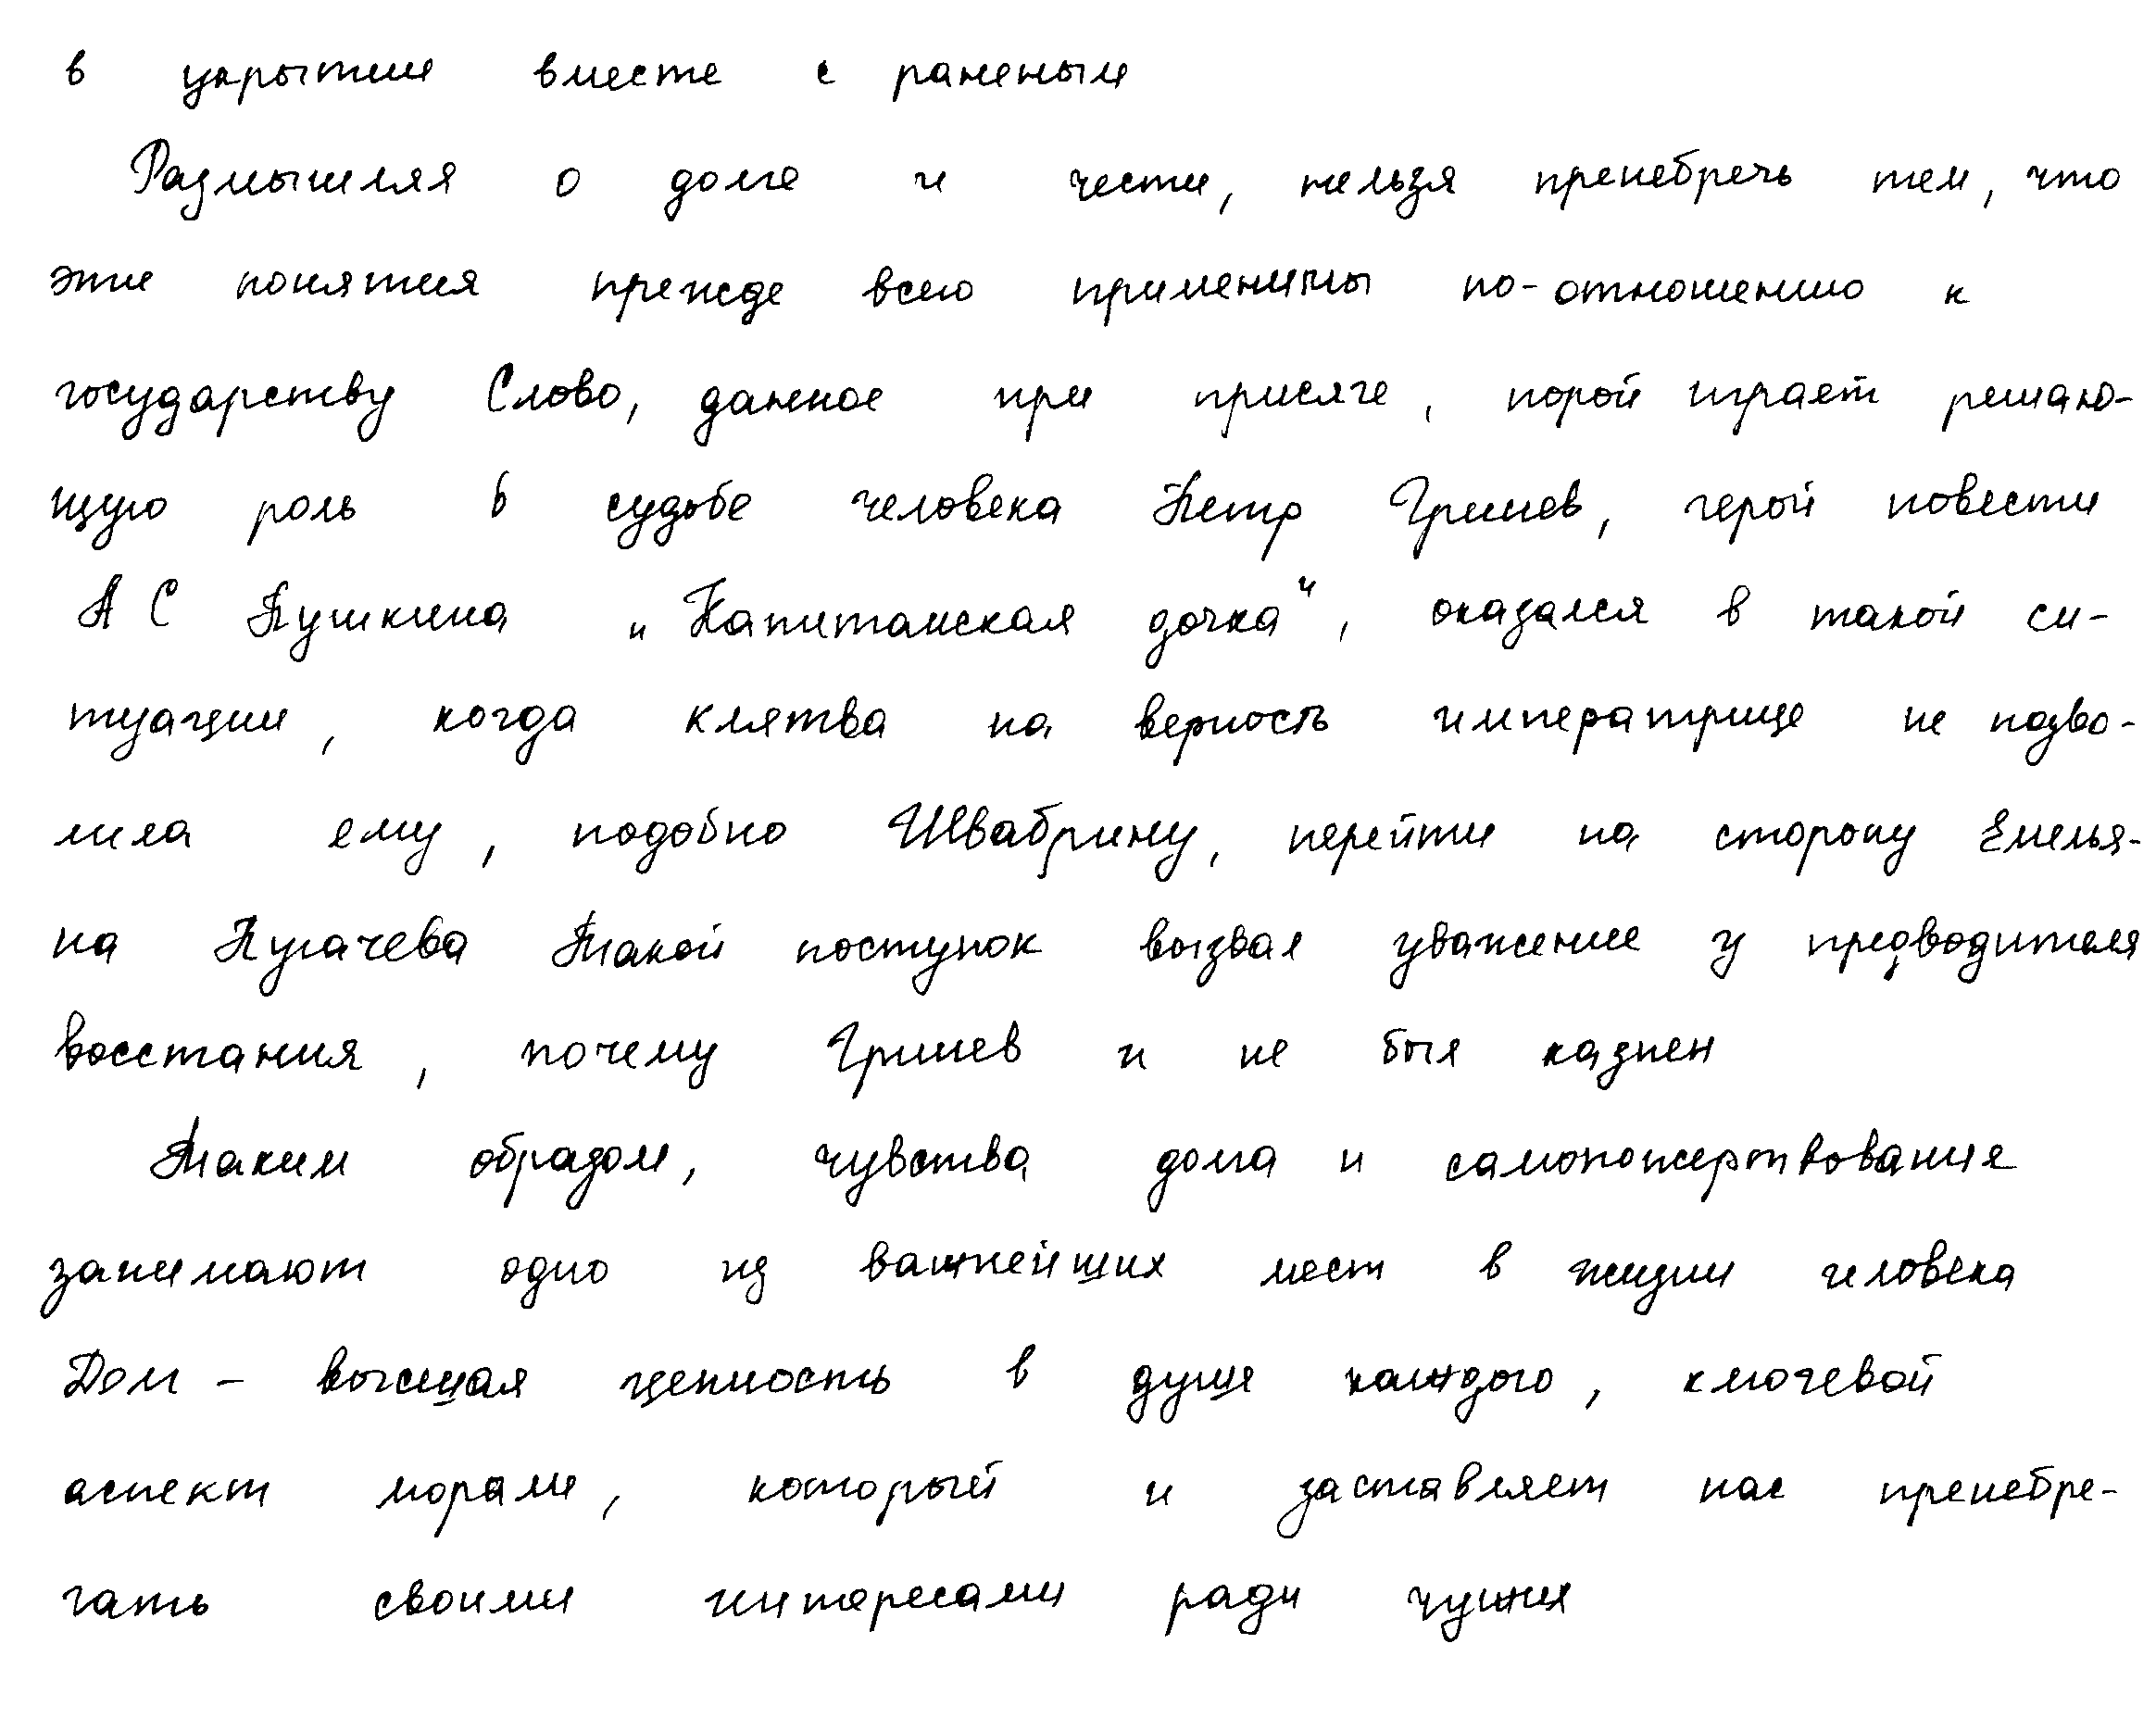 в укрытие вместе с раненым
Размышляя о долге и чести, нельзя пренебречь тем, что
эти понятия прежде всего применимы по-отношению к
государству Слово, данное при присяге, порой играет решаю-
щую роль в судьбе человека Петр Гринев, герой повести
А С Пушкина „Капитанская дочка“, оказался в такой си-
туации, когда клятва на верность императрице не позво-
лила ему, подобно Швабрину, перейти на сторону Емелья-
на Пугачева Такой поступок вызвал уважение у предводителя
восстания, почему Гринев и не был казнен
Таким образом, чувства долга и самопожертвования
занимают одно из важнейших мест в жизни человека
Долг – высшая ценность в душе каждого, ключевой
аспект морали, который и заставляет нас пренебре-
гать своими интересами ради чужих